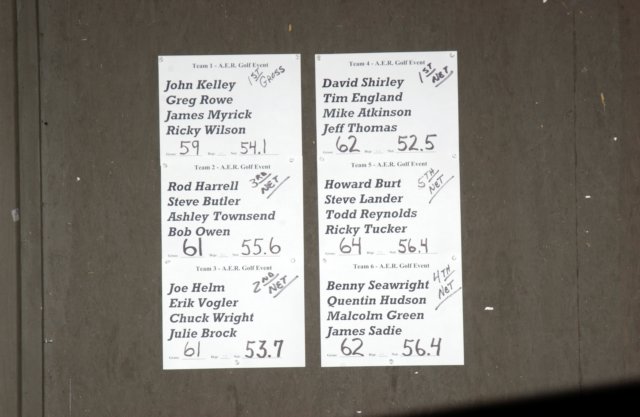 Team 1 - A.E.R. Golf Event
1ST GROSS
John Kelley
Greg Rowe
James Myrick
Ricky Wilson
59 54.1
Team 2 - A.E.R. Golf Event
3RD NET
Rod Harrell
Steve Butler
Ashley Townsend
Bob Owen
61 55.6
Team 3 - A.E.R. Golf Event
2ND NET
Joe Helm
Erik Vogler
Chuck Wright
Julie Brock
61 53.7
Team 4 - A.E.R. Golf Event
1ST NET
David Shirley
Tim England
Mike Atkinson
Jeff Thomas
62 52.5
Team 5 - A.E.R. Golf Event
5TH NET
Howard Burt
Steve Lander
Todd Reynolds
Ricky Tucker
64 56.4
Team 6 - A.E.R. Golf Event
4TH NET
Benny Seawright
Quentin Hudson
Malcolm Green
James Sadie
62 56.4